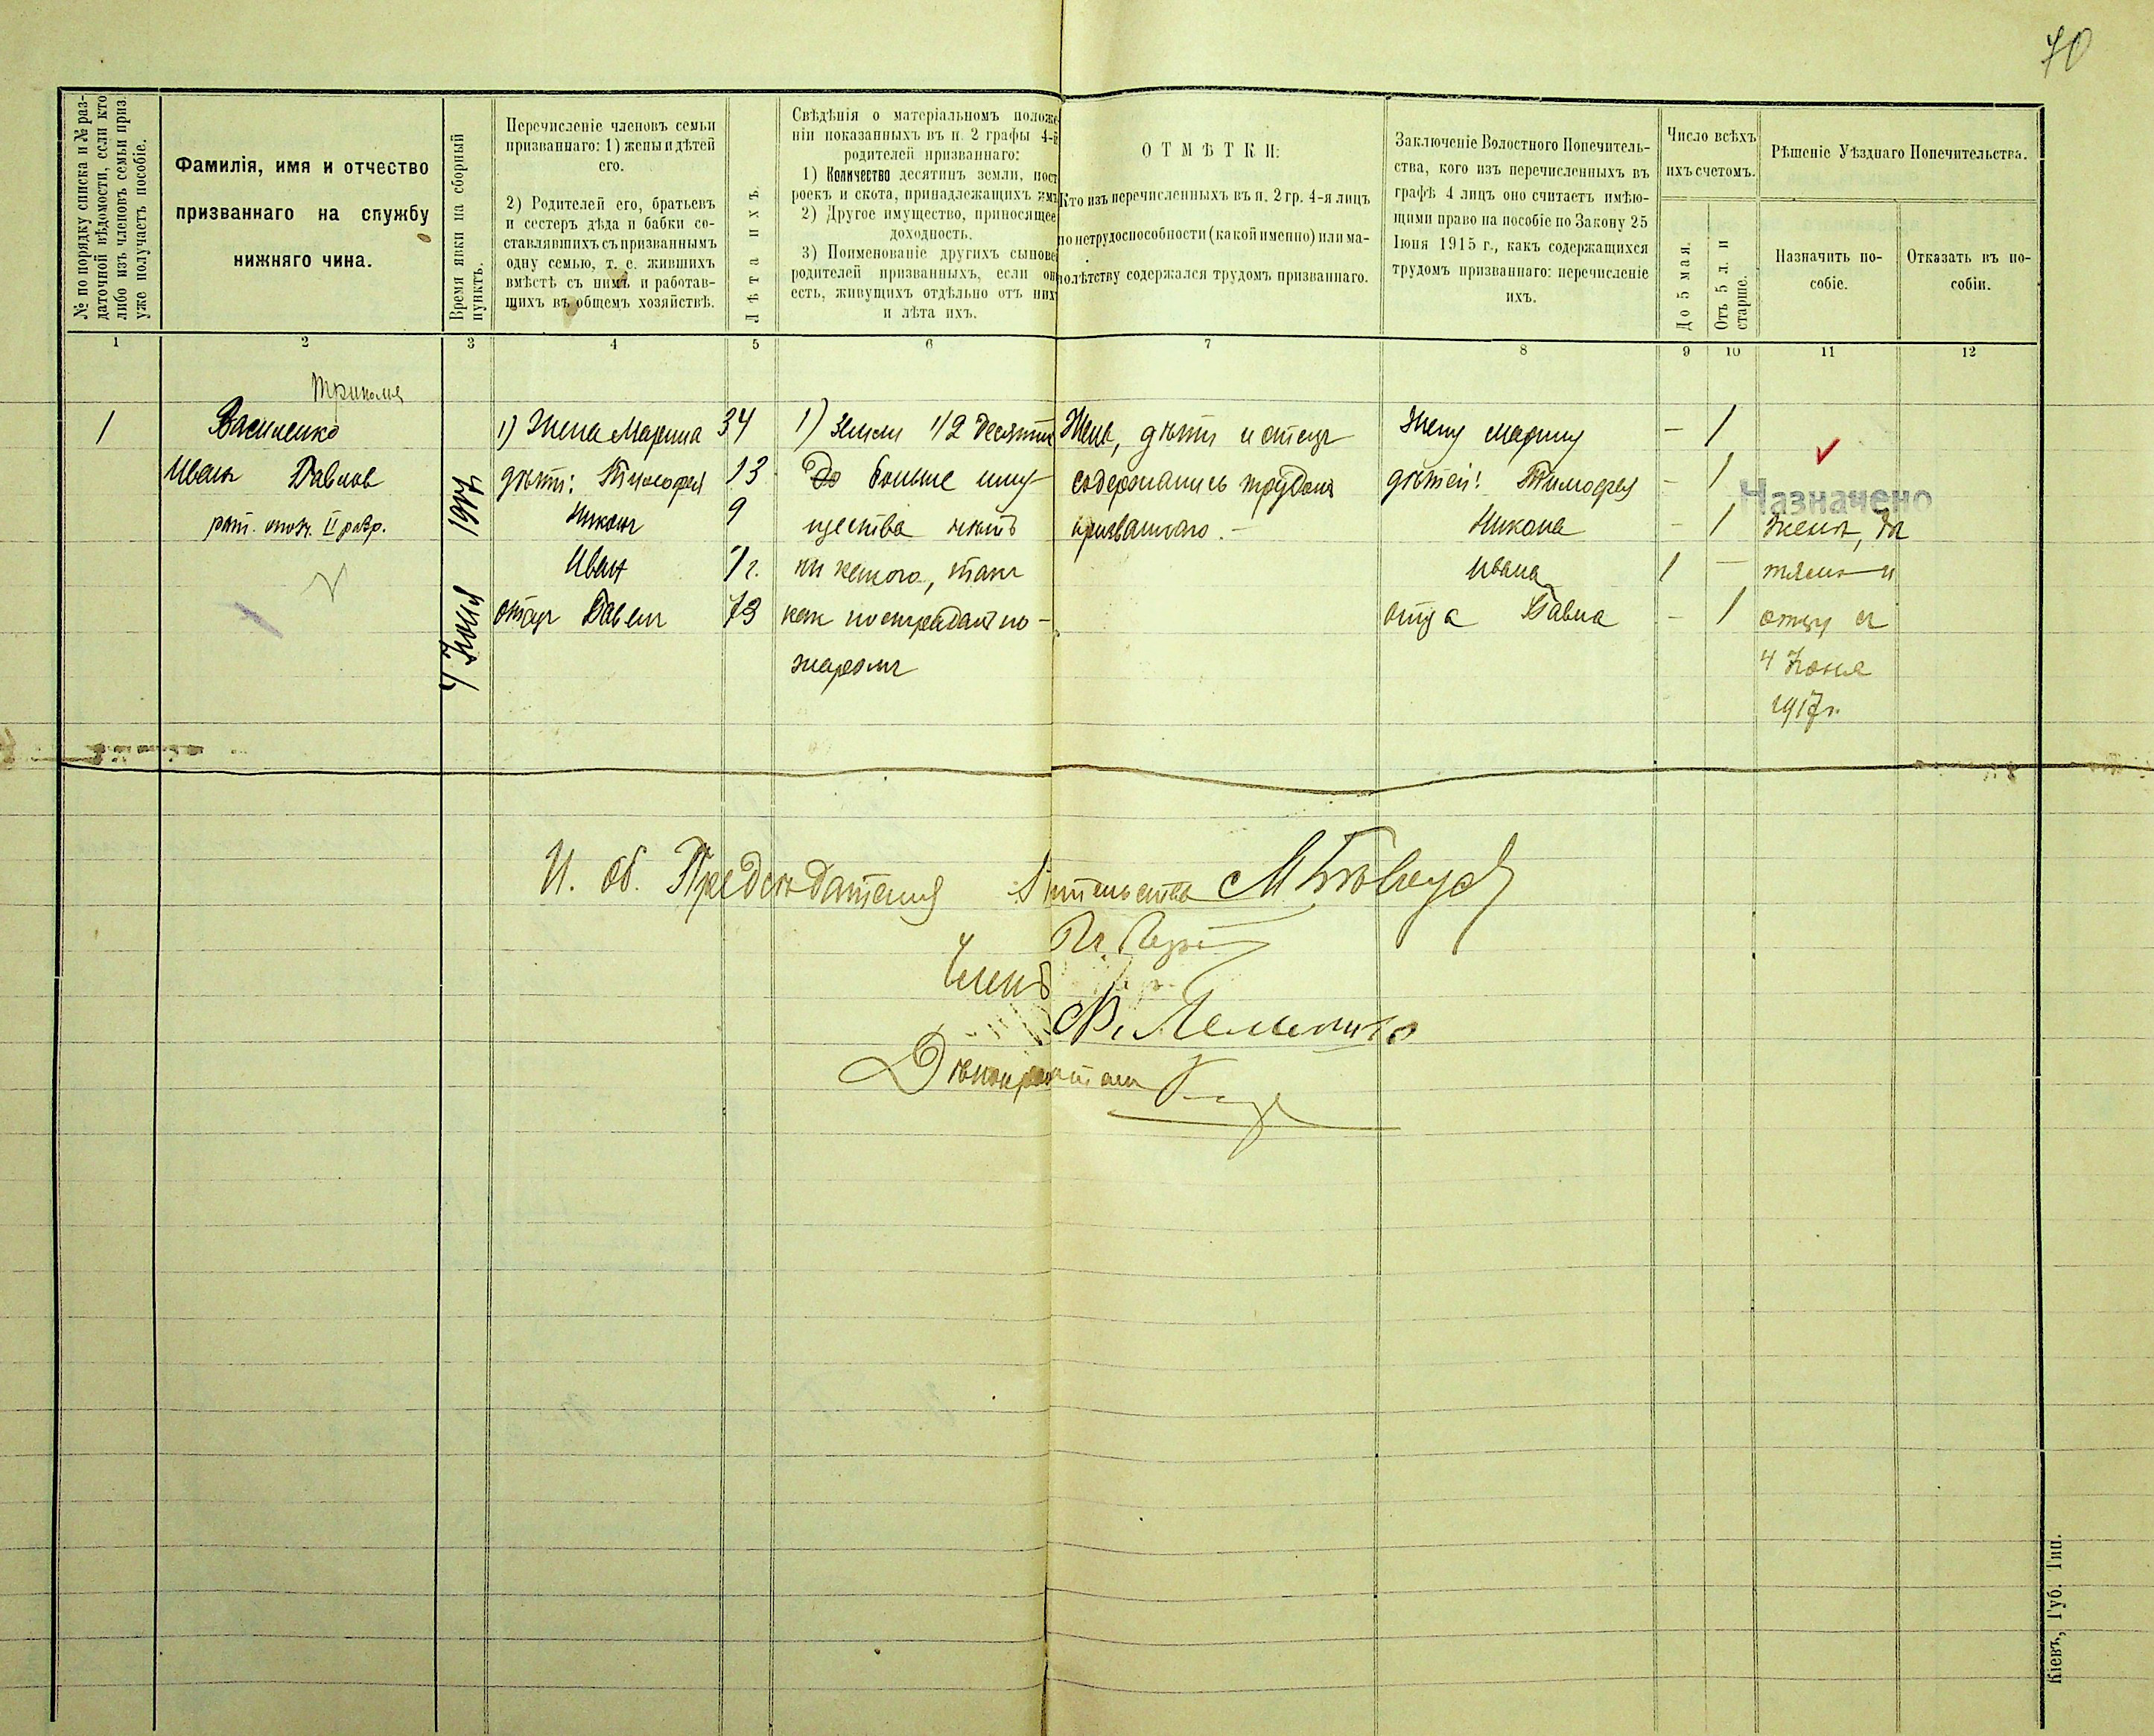 70
№ по порядку списка и № раз-
даточной вѣдомости, если кто
либо изъ членовъ семьи приз.
уже получаетъ пособіе.
Фамилія, имя и отчество
призваннаго на службу
нижняго чина.
Время явки на сборный
пунктъ.
Перечисленіе членовъ семьи
призваннаго: 1) жены и дѣтей
его.
2) Родителей его, братьевъ
и сестеръ дѣда и бабки со-
ставлявшихъ съ призваннымъ
одну семью, т. е. жившихъ
вмѣстѣ съ нимъ и работав-
щихъ въ общемъ хозяйствѣ.
Лѣта ихъ.
Свѣдѣнія о матеріальномъ положе
ніи показанныхъ въ п. 2 графы 4-й
родителей призваннаго:
1) Количество десятинъ земли, пост
роекъ и скота, принадлежащихъ имъ
2) Другое имущество, приносящее
доходность.
3) Поименованіе другихъ сынове
родителей призванныхъ, если он
есть, живущихъ отдѣльно отъ них
и лѣта ихъ.
ОТМѢТКИ:
Кто изъ перечисленныхъ въ п. 2 гр. 4-я лицъ
по нетрудоспособности (какой именно) или ма-
лолѣтству содержался трудомъ призваннаго.
Заключеніе Волостного Попечитель-
ства, кого изъ перечисленныхъ въ
графѣ 4 лицъ оно считаетъ имѣю-
щими право на пособіе по Закону 25
Іюня 1915 г., какъ содержащихся
трудомъ призваннаго: перечисленіе
ихъ.
Число всѣхъ
ихъ счетомъ.
До 5 мая.
Отъ 5 л. и
старше.
Рѣшеніе Уѣзднаго Попечительства.
Назначить по-
собіе.
Отказать въ по-
собіи.
1 2 3 4 5 6 7 8 9 10 11 12
Триполья
1 Василенко 1) Жена Марина 34 1) Земли 1/2 десятин Жена, дѣти и отецъ Жену Марину - 1
Иванъ Павлов дѣти: Тимофея 13 больше иму- содержались трудомъ дѣтей: Тимофея - 1
Назначено
рат. опол. II разр. Никонъ 9 щества нѣтъ призваннаго. - Никона - 1 женѣ, дѣ
Иван 1 г. ни какого, такъ Ивана 1 - тямъ и
отецъ Павелъ 73 как пострадалъ по- отца Павла - 1 отцу съ
4 Іюня 1917
жаромъ 4 Іюня
1917 г.
И. об. Предсѣдателя
Членъ
Дѣлопроизводитель
Кіевъ, Губ. Тип.